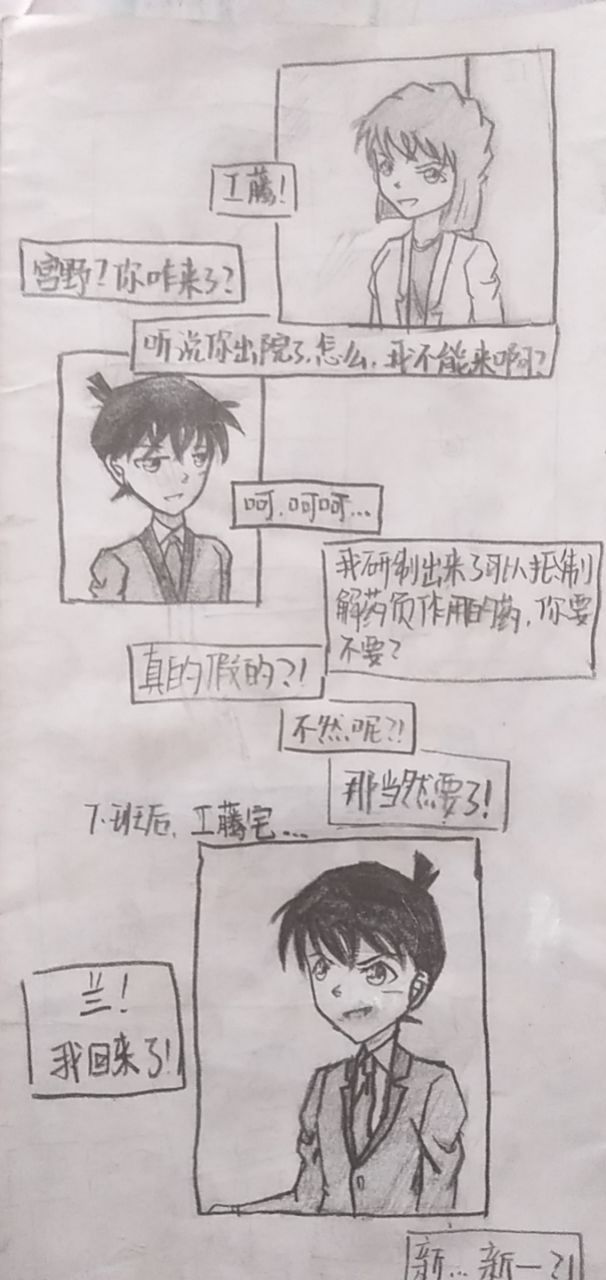 工藤！
宫野？你咋来了？
听说你出院了，怎么，我不能来啊？
呵，呵呵…
我研制出来了可以抵制
解药负作用的药，你要
不要？
真的假的？！
不然呢？！
那当然要了！
下班后，工藤宅…
兰！
我回来了！
新…新一？！